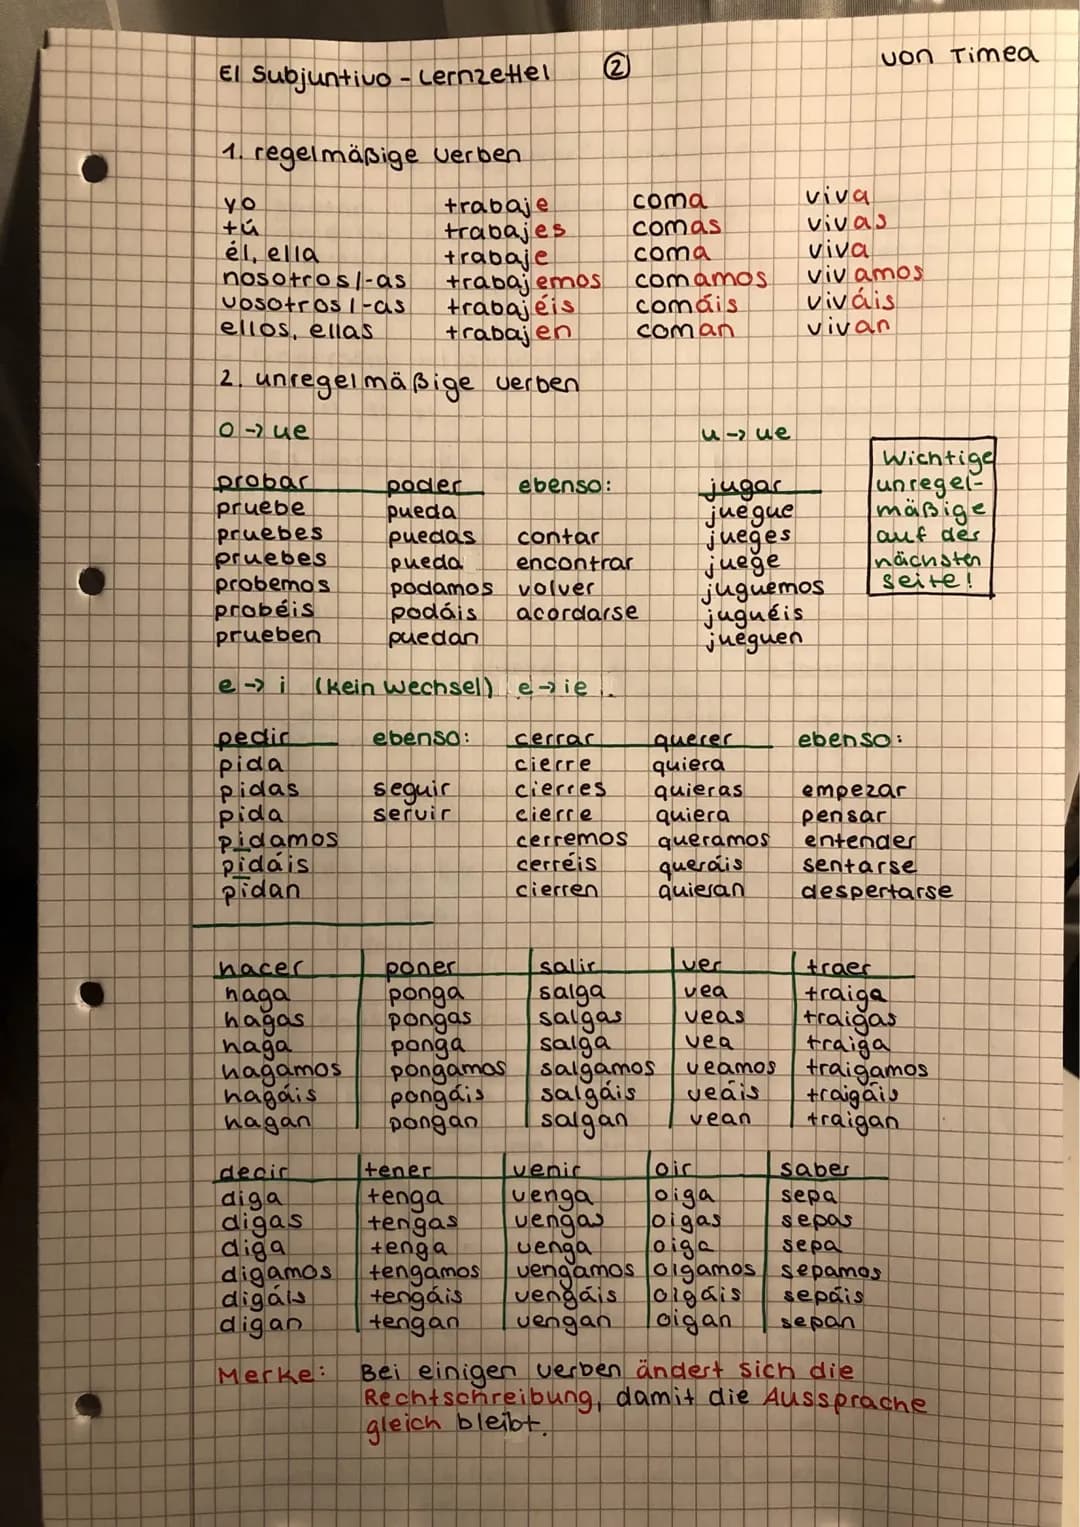 El Subjuntivo - Lernzettel ② von Timea
1. regelmäßige Verben
yo trabaje coma viva
tú trabajes comas vivas
él, ella trabaje coma viva
nosotros/-as trabajemos comamos vivamos
vosotros/-as trabajéis comáis viváis
ellos, ellas trabajen coman vivan
2. unregelmäßige Verben
o → ue u → ue
probar poder ebenso: jugar
pruebe pueda juegue
pruebes puedas contar jueges
pruebes pueda encontrar juege
probemos podamos volver juguemos
probéis podáis acordarse juguéis
prueben puedan jueguen
Wichtige
unregel-
mäßige
auf der
nächsten
Seite!
e → i (kein Wechsel) e → ie
pedir ebenso: cerrar querer ebenso:
pida cierre quiera
pidas seguir cierres quieras empezar
pida servir cierre quiera pensar
pidamos cerremos queramos entender
pidáis cerréis queráis sentarse
pidan cierren quieran despertarse
hacer poner salir ver traer
haga ponga salga vea traiga
hagas pongas salgas veas traigas
haga ponga salga vea traiga
hagamos pongamos salgamos veamos traigamos
hagáis pongáis salgáis veáis traigáis
hagan pongan salgan vean traigan
decir tener venir oir saber
diga tenga venga oiga sepa
digas tengas vengas oigas sepas
diga tenga venga oiga sepa
digamos tengamos vengamos oigamos sepamos
digáis tengáis vengáis oigáis sepáis
digan tengan vengan oigan sepan
Merke: Bei einigen Verben ändert sich die
Rechtschreibung, damit die Aussprache
gleich bleibt.